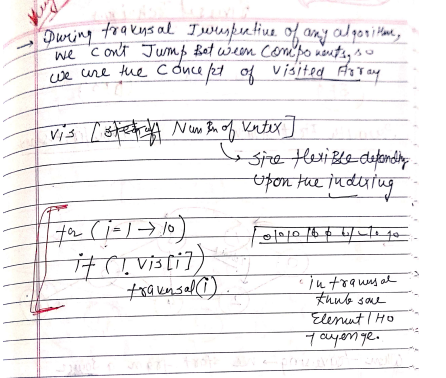 → During traversal Irrespective of any algorithm,
we cont Jump Between Components, so
we use the Concept of Visited Array
vis [ Number of Vertex]
↳ size flexible depending
upon the indexing
for (i=1 → 10)
if (! Vis[i])
traversal(i)
in traversal
Element